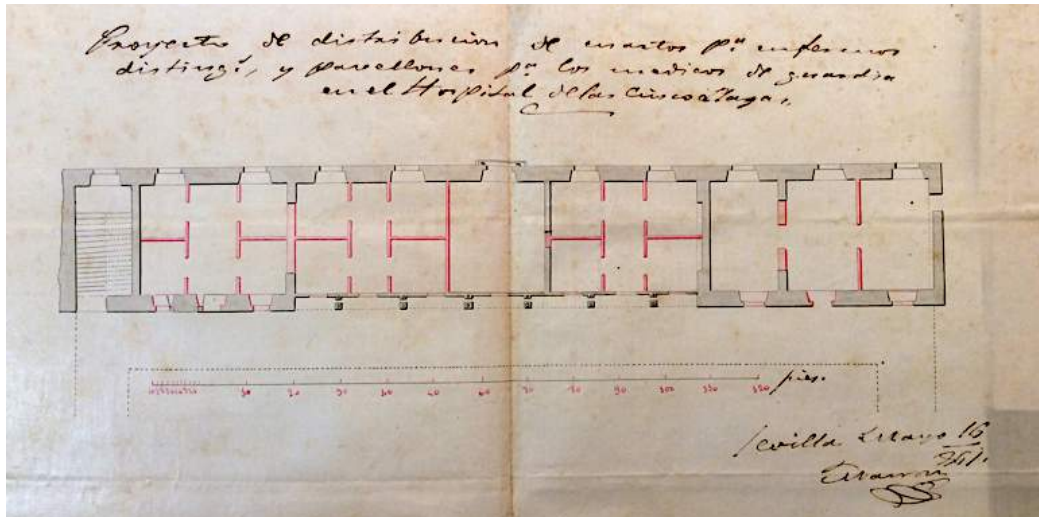 Proyecto de distribucion de cuartos pª enfermos
disting.s, y pavellones pª los medicos de guardia
en el Hospital de las Cinco llagas.
10 20 30 40 60 70 90 100 120 pies.
Sevilla Mayo 16